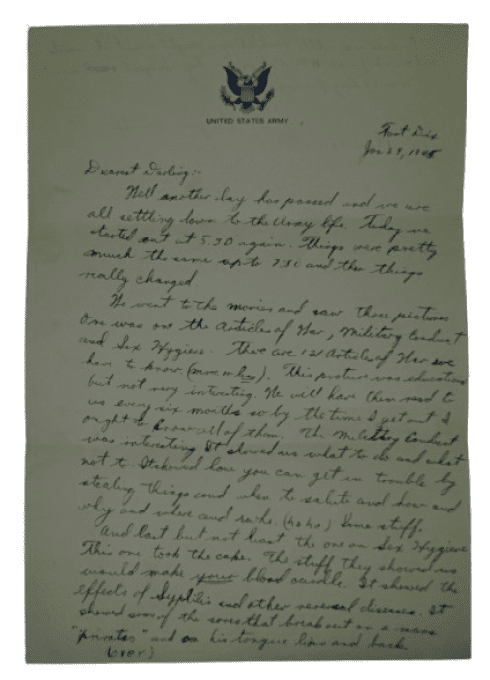 UNITED STATES ARMY
Fort Dix
Jan 29, 1945
Dearest Darling:-
Well another day has passed and we are
all settling down to the Army life. Today we
started out at 5:30 again. Things were pretty
much the same up to 7:30 and then things
really changed.
We went to the movies and saw three pictures
One was on the Articles of War, Military Conduct
and Sex Hygiene. There are 121 Articles of War we
have to know. This picture was education
but not very interesting. We will have them read to
us every six months so by the time I get out I
ought to know all of them. The Military Conduct
was interesting. It showed us what to do and what
not to. It showed how you can get in trouble by
stealing things and when to salute and how and
why and where and (ha ha) Some stuff.
And last but not least the one on Sex Hygiene
This one took the cake. The stuff they showed us
would make your blood curdle. It showed the
effects of Syphilis and other venereal diseases. It
showed some of the sores that break out on a mans
"privates" and on his tongue lips and back.
(over)